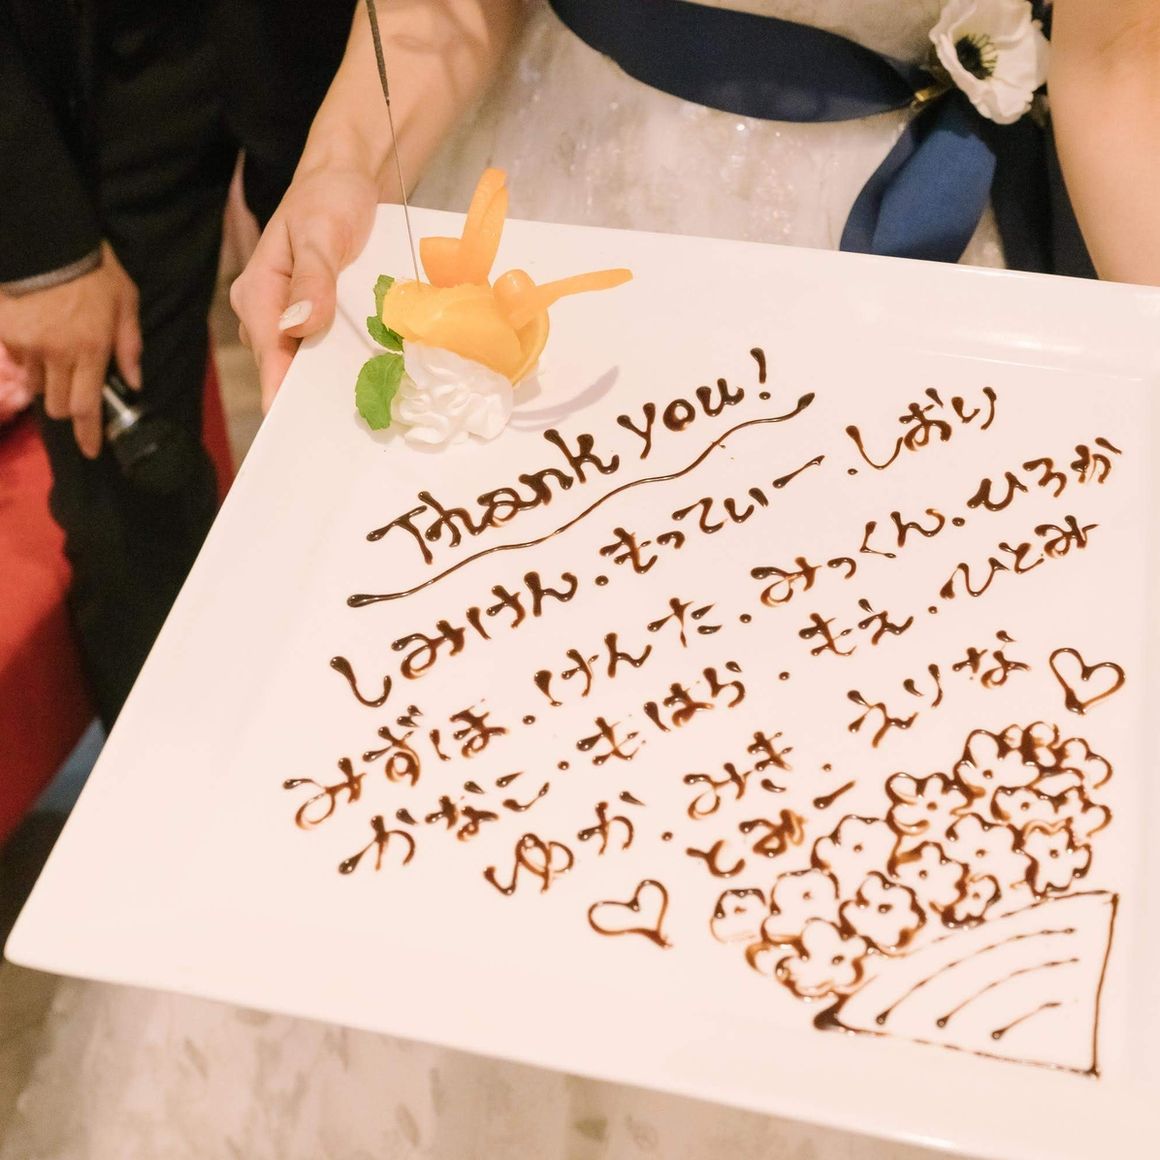 Thank you!
しみけん・もってぃー・しおり
みずほ・けんた・みっくん・ひろか
かなこ・きはら・もえ・ひとみ
ゆか・みき・えりな
とも